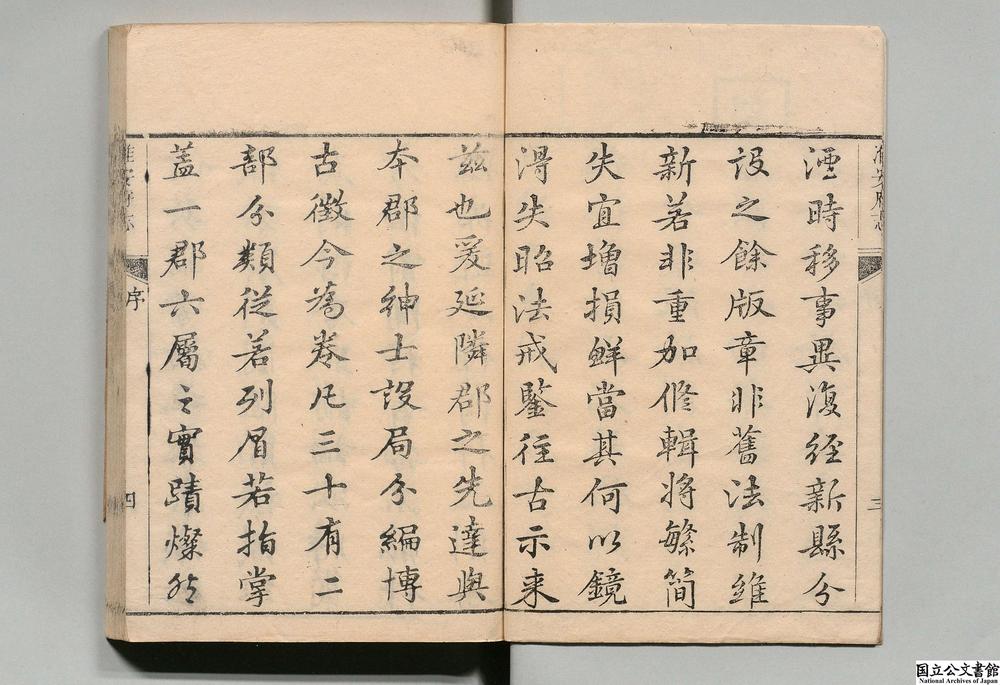 湮時移事異復經新縣分
設之餘版章非舊法制維
新若非重加修輯將繁簡
失宜增損鮮當其何以鏡
得失昭法戒鑒往古示来
茲也爰延隣郡之先達與
本郡之紳士設局分編博
古徵今為卷凡三十有二
部分類從若列眉若指掌
蓋一郡六屬之實蹟燦然
淮安府志
三
淮安府志
序
四
国立公文書館
National Archives of Japan